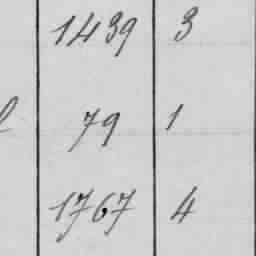 1439 3
79 1
1767 4